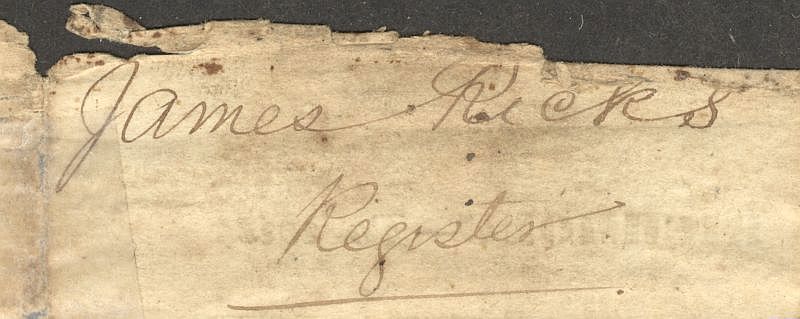 James Ricks
Register